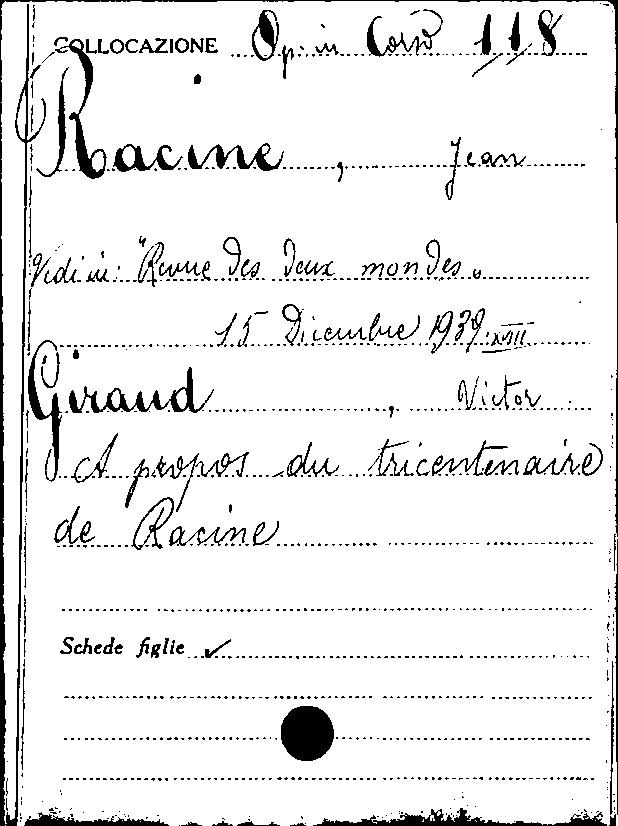 COLLOCAZIONE Op. in Corso 118
Racine, Jean
Vedi in: "Revue des deux mondes„
15 Dicembre 1939.XVIII
Giraud, Victor
A propos du tricentenaire
de Racine
Schede figlie ✓